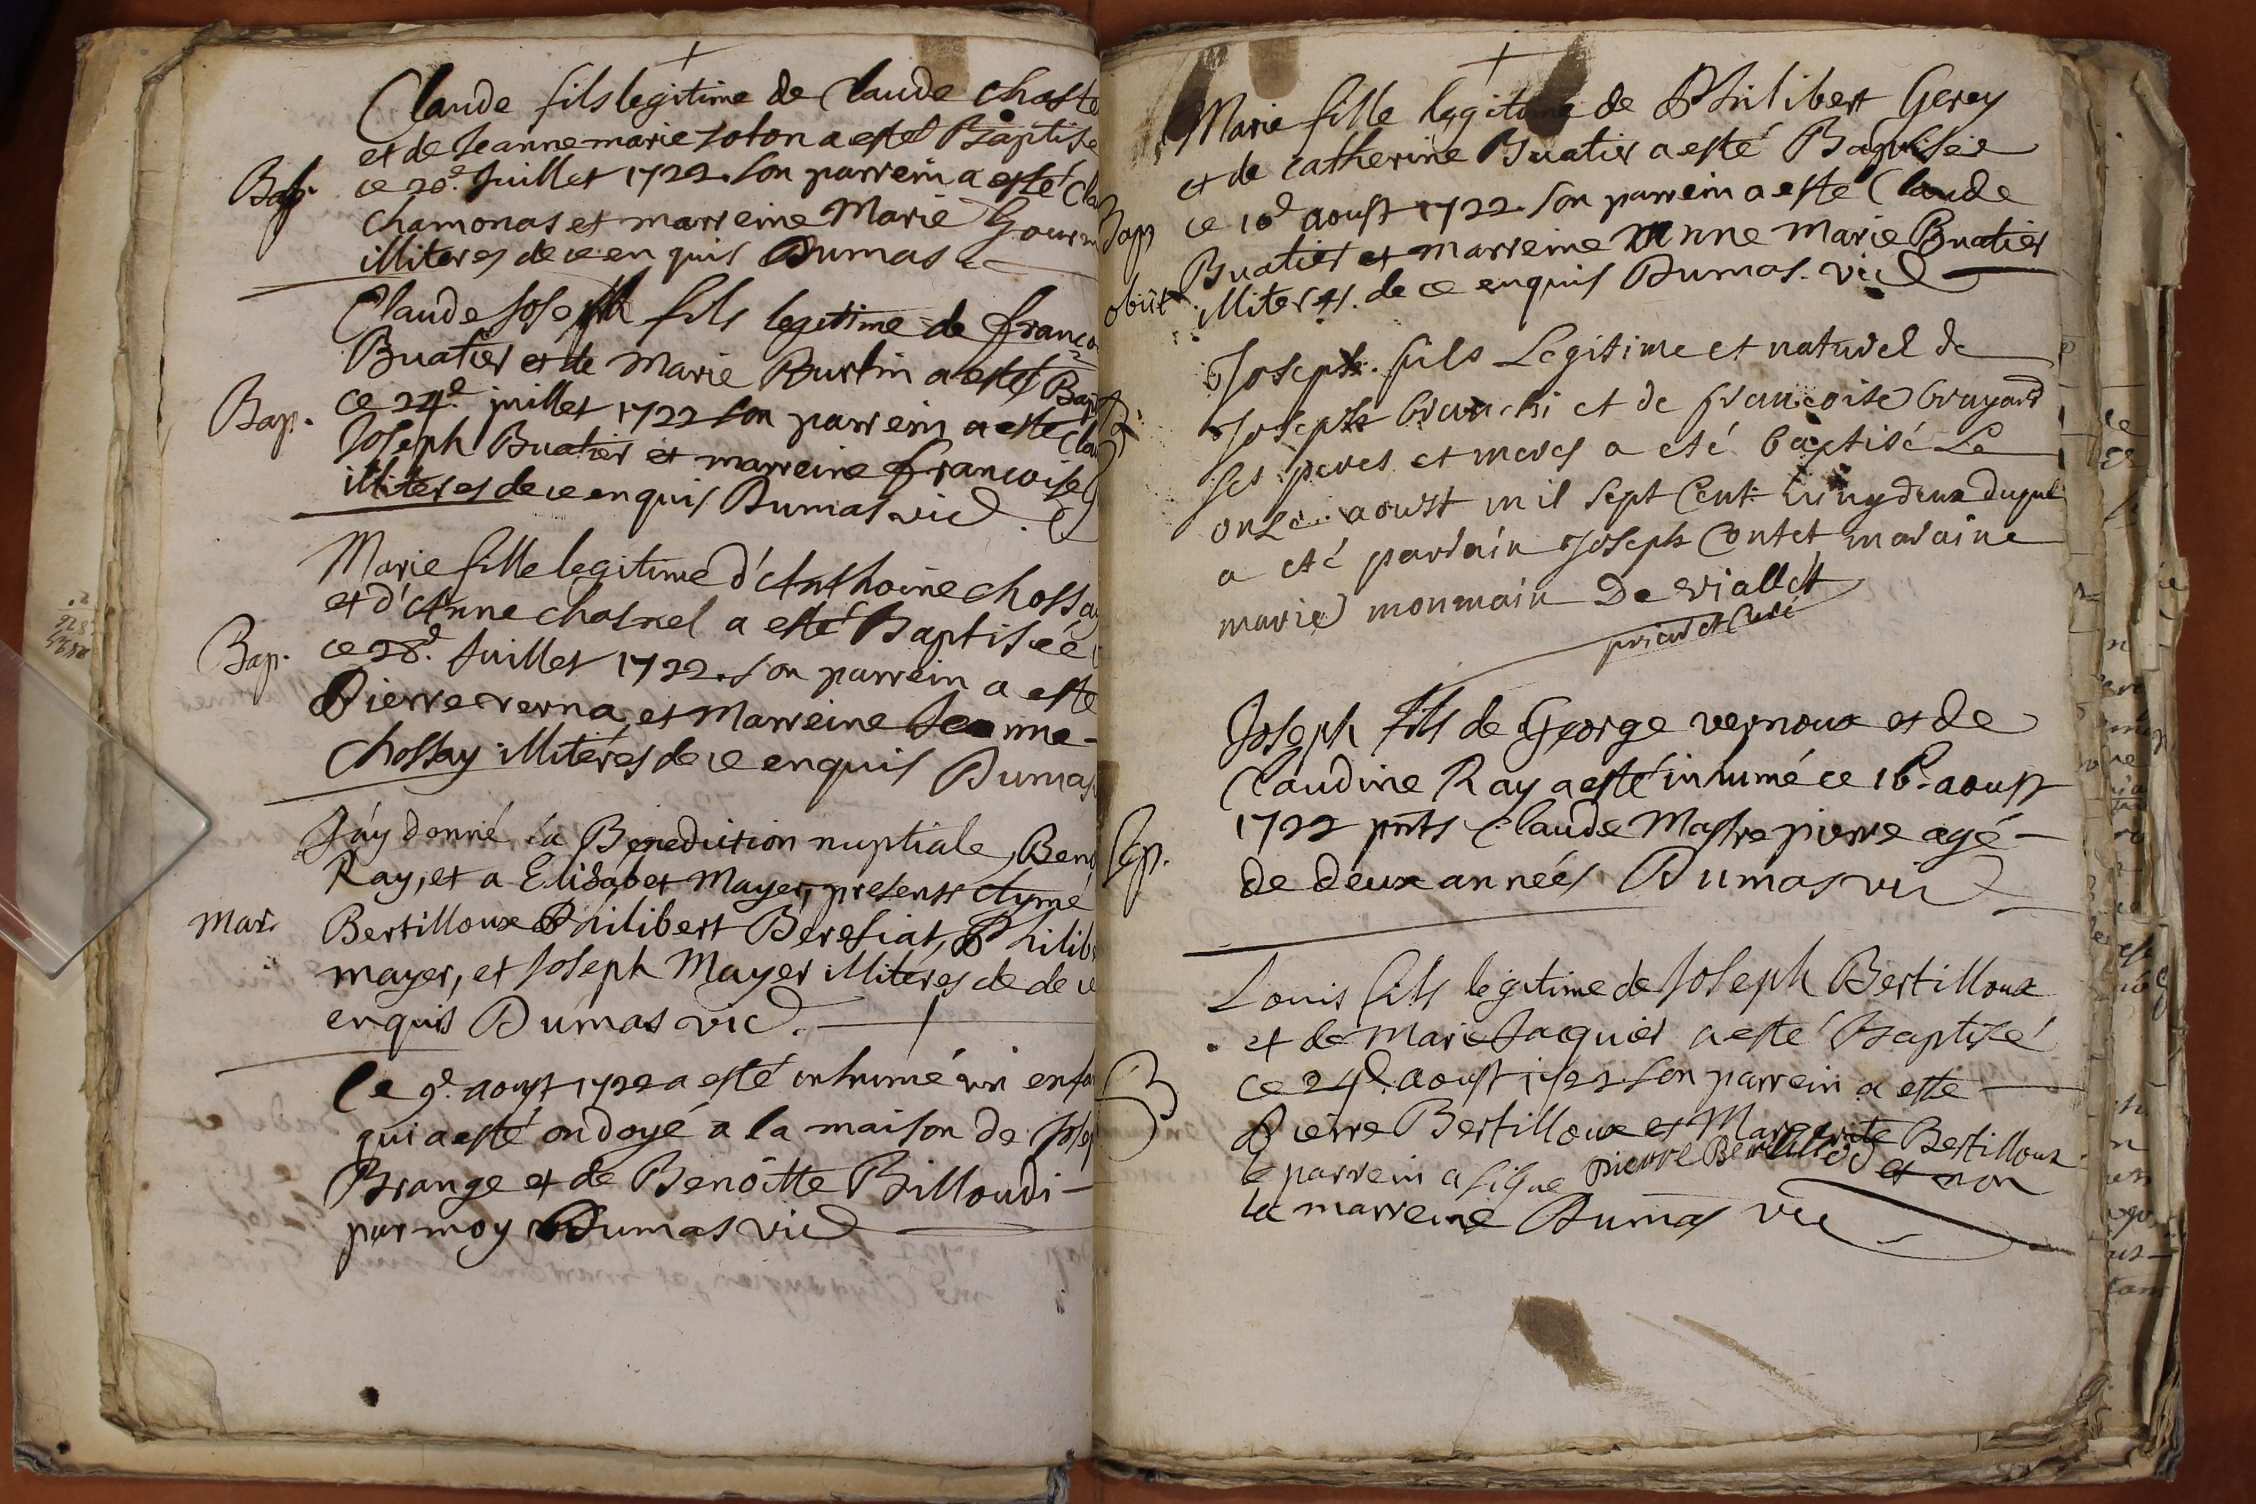 Claude fils legitime de Claude Chaste
et de Jeanne marie Loton a esté Baptise
Bap. ce 20e. Juillet 1722. Son parrein a esté Cla
Chamonas et marreine Marie Gourm
illiteres de ce enquis Dumas
Claude Joseph fils legitime de franco
Buatier et de Marie Burtin a esté Bap
Bap. ce 24e. juillet 1722 Son parrein a esté Clau
Joseph Buatier et marreine francoise
illiteres de ce enquis Dumas vic
Marie fille legitime d'Anthoine Chossa
et d'Anne Chasnel a esté Baptiséé
Bap. ce 28e. Juillet 1722. Son parrein a este
Pierre verna, et Marreine Jeanne
Chossay illitérés de ce enquis Dumas
J'ay donné la Benediction nuptiale, Beno
Ray, et a Elisabet Mayer, presents Aymé
Mar. Bertilloux Philibert Berefiat, Philib
mayer, et Joseph Mayer illitérés de de ce
enquis Dumas vic.
Le 9e. aoust 1722 a esté inhumé un enfa
qui a esté ondoyé a la maison de Josep
Brange et de Benoitte Billoudi
par moy Dumas vic
Marie fille legitime de Philibert Gerey
et de Catherine Buatier a esté Baptisée
Bap ce 10e aoust 1722. Son parrein a este Claude
Buatier et marreine Anne Marie Buatier
obiit illiteres. de ce enquis Dumas. vic
Joseph. fils Legitime et naturel de
Joseph et de francoise Gruyard
ses peres et meres a eté baptisé Le
onze aoust mil sept Cent vingdeux duquel
a eté pardain Joseph Contet maraine
marie monmain De vialLett
prieur et Curé
Joseph fils de George vernoux et de
Claudine Ray a esté inhumé ce 16e. aoust
1722 pnts Claude Mastre pierre agé
Sep. de deux années Dumas vic
Louis fils légitime de Joseph Bertilloux
et de Marie Jaquier a esté Baptisé
B ce 24e. aoust 1722 Son parrein a este
Pierre Bertilloux et Marguerite Bertilloux
le parrein a signé pierre Bertilloud et non
la marreine Dumas vic